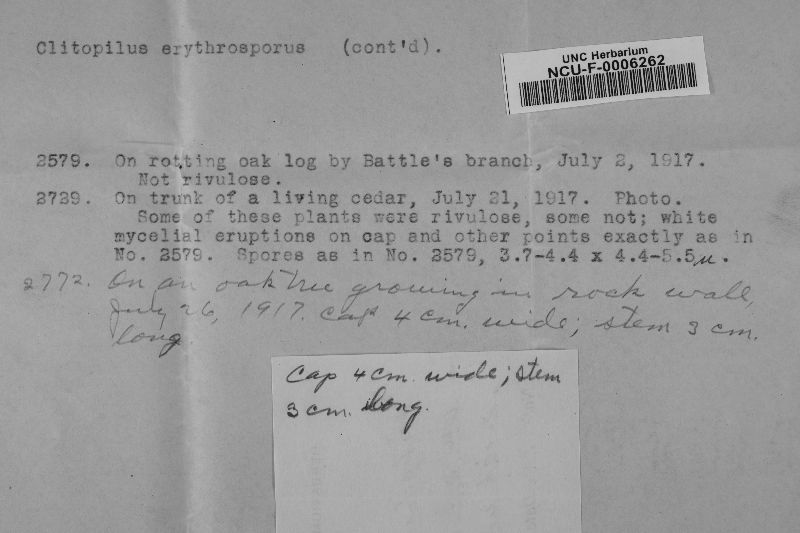 Clitopilus erythrosporus (cont'd).
UNC Herbarium
NCU-F-0006262
2579. On rotting oak log by Battle's branch, July 2, 1917.
Not rivulose.
2729. On trunk of a living cedar, July 21, 1917. Photo.
Some of these plants were rivulose, some not; white
mycelial eruptions on cap and other points exactly as in
No. 2579. Spores as in No. 2579, 3.7-4.4 x 4.4-5.5µ.
2772. On an oak tree growing in rock wall,
July 26, 1917. Cap 4 cm. wide; stem 3 cm.
long.
Cap 4 cm. wide; stem
3 cm. long.